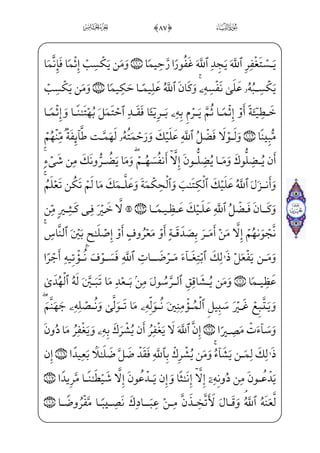 ﴿٨٧﴾
يَسْتَغْفِرِ ٱللَّهَ يَجِدِ ٱللَّهَ غَفُورًا رَّحِيمًا ١١٠ وَمَن يَكْسِبْ إِثْمًا فَإِنَّمَا
يَكْسِبُهُۥ عَلَىٰ نَفْسِهِۦ ۚ وَكَانَ ٱللَّهُ عَلِيمًا حَكِيمًا ١١١ وَمَن يَكْسِبْ
خَطِيٓـَٔةً أَوْ إِثْمًا ثُمَّ يَرْمِ بِهِۦ بَرِيٓـًٔا فَقَدِ ٱحْتَمَلَ بُهْتَـٰنًا وَإِثْمًا
مُّبِينًا ١١٢ وَلَوْلَا فَضْلُ ٱللَّهِ عَلَيْكَ وَرَحْمَتُهُۥ لَهَمَّت طَّآئِفَةٌ مِّنْهُمْ
أَن يُضِلُّوكَ وَمَا يُضِلُّونَ إِلَّآ أَنفُسَهُمْ ۖ وَمَا يَضُرُّونَكَ مِن شَىْءٍ ۚ
وَأَنزَلَ ٱللَّهُ عَلَيْكَ ٱلْكِتَـٰبَ وَٱلْحِكْمَةَ وَعَلَّمَكَ مَا لَمْ تَكُن تَعْلَمُ ۚ
وَكَانَ فَضْلُ ٱللَّهِ عَلَيْكَ عَظِيمًا ١١٣ ۞ لَّا خَيْرَ فِى كَثِيرٍ مِّن
نَّجْوَىٰهُمْ إِلَّا مَنْ أَمَرَ بِصَدَقَةٍ أَوْ مَعْرُوفٍ أَوْ إِصْلَـٰحٍۭ بَيْنَ ٱلنَّاسِ ۚ
وَمَن يَفْعَلْ ذَٰلِكَ ٱبْتِغَآءَ مَرْضَاتِ ٱللَّهِ فَسَوْفَ نُؤْتِيهِ أَجْرًا
عَظِيمًا ١١٤ وَمَن يُشَاقِقِ ٱلرَّسُولَ مِنۢ بَعْدِ مَا تَبَيَّنَ لَهُ ٱلْهُدَىٰ
وَيَتَّبِعْ غَيْرَ سَبِيلِ ٱلْمُؤْمِنِينَ نُوَلِّهِۦ مَا تَوَلَّىٰ وَنُصْلِهِۦ جَهَنَّمَ ۖ
وَسَآءَتْ مَصِيرًا ١١٥ إِنَّ ٱللَّهَ لَا يَغْفِرُ أَن يُشْرَكَ بِهِۦ وَيَغْفِرُ مَا دُونَ
ذَٰلِكَ لِمَن يَشَآءُ ۚ وَمَن يُشْرِكْ بِٱللَّهِ فَقَدْ ضَلَّ ضَلَـٰلًۢا بَعِيدًا ١١٦ إِن
يَدْعُونَ مِن دُونِهِۦٓ إِلَّآ إِنَـٰثًا وَإِن يَدْعُونَ إِلَّا شَيْطَـٰنًا مَّرِيدًا ١١٧
لَّعَنَهُ ٱللَّهُ ۘ وَقَالَ لَأَتَّخِذَنَّ مِنْ عِبَادِكَ نَصِيبًا مَّفْرُوضًا ١١٨